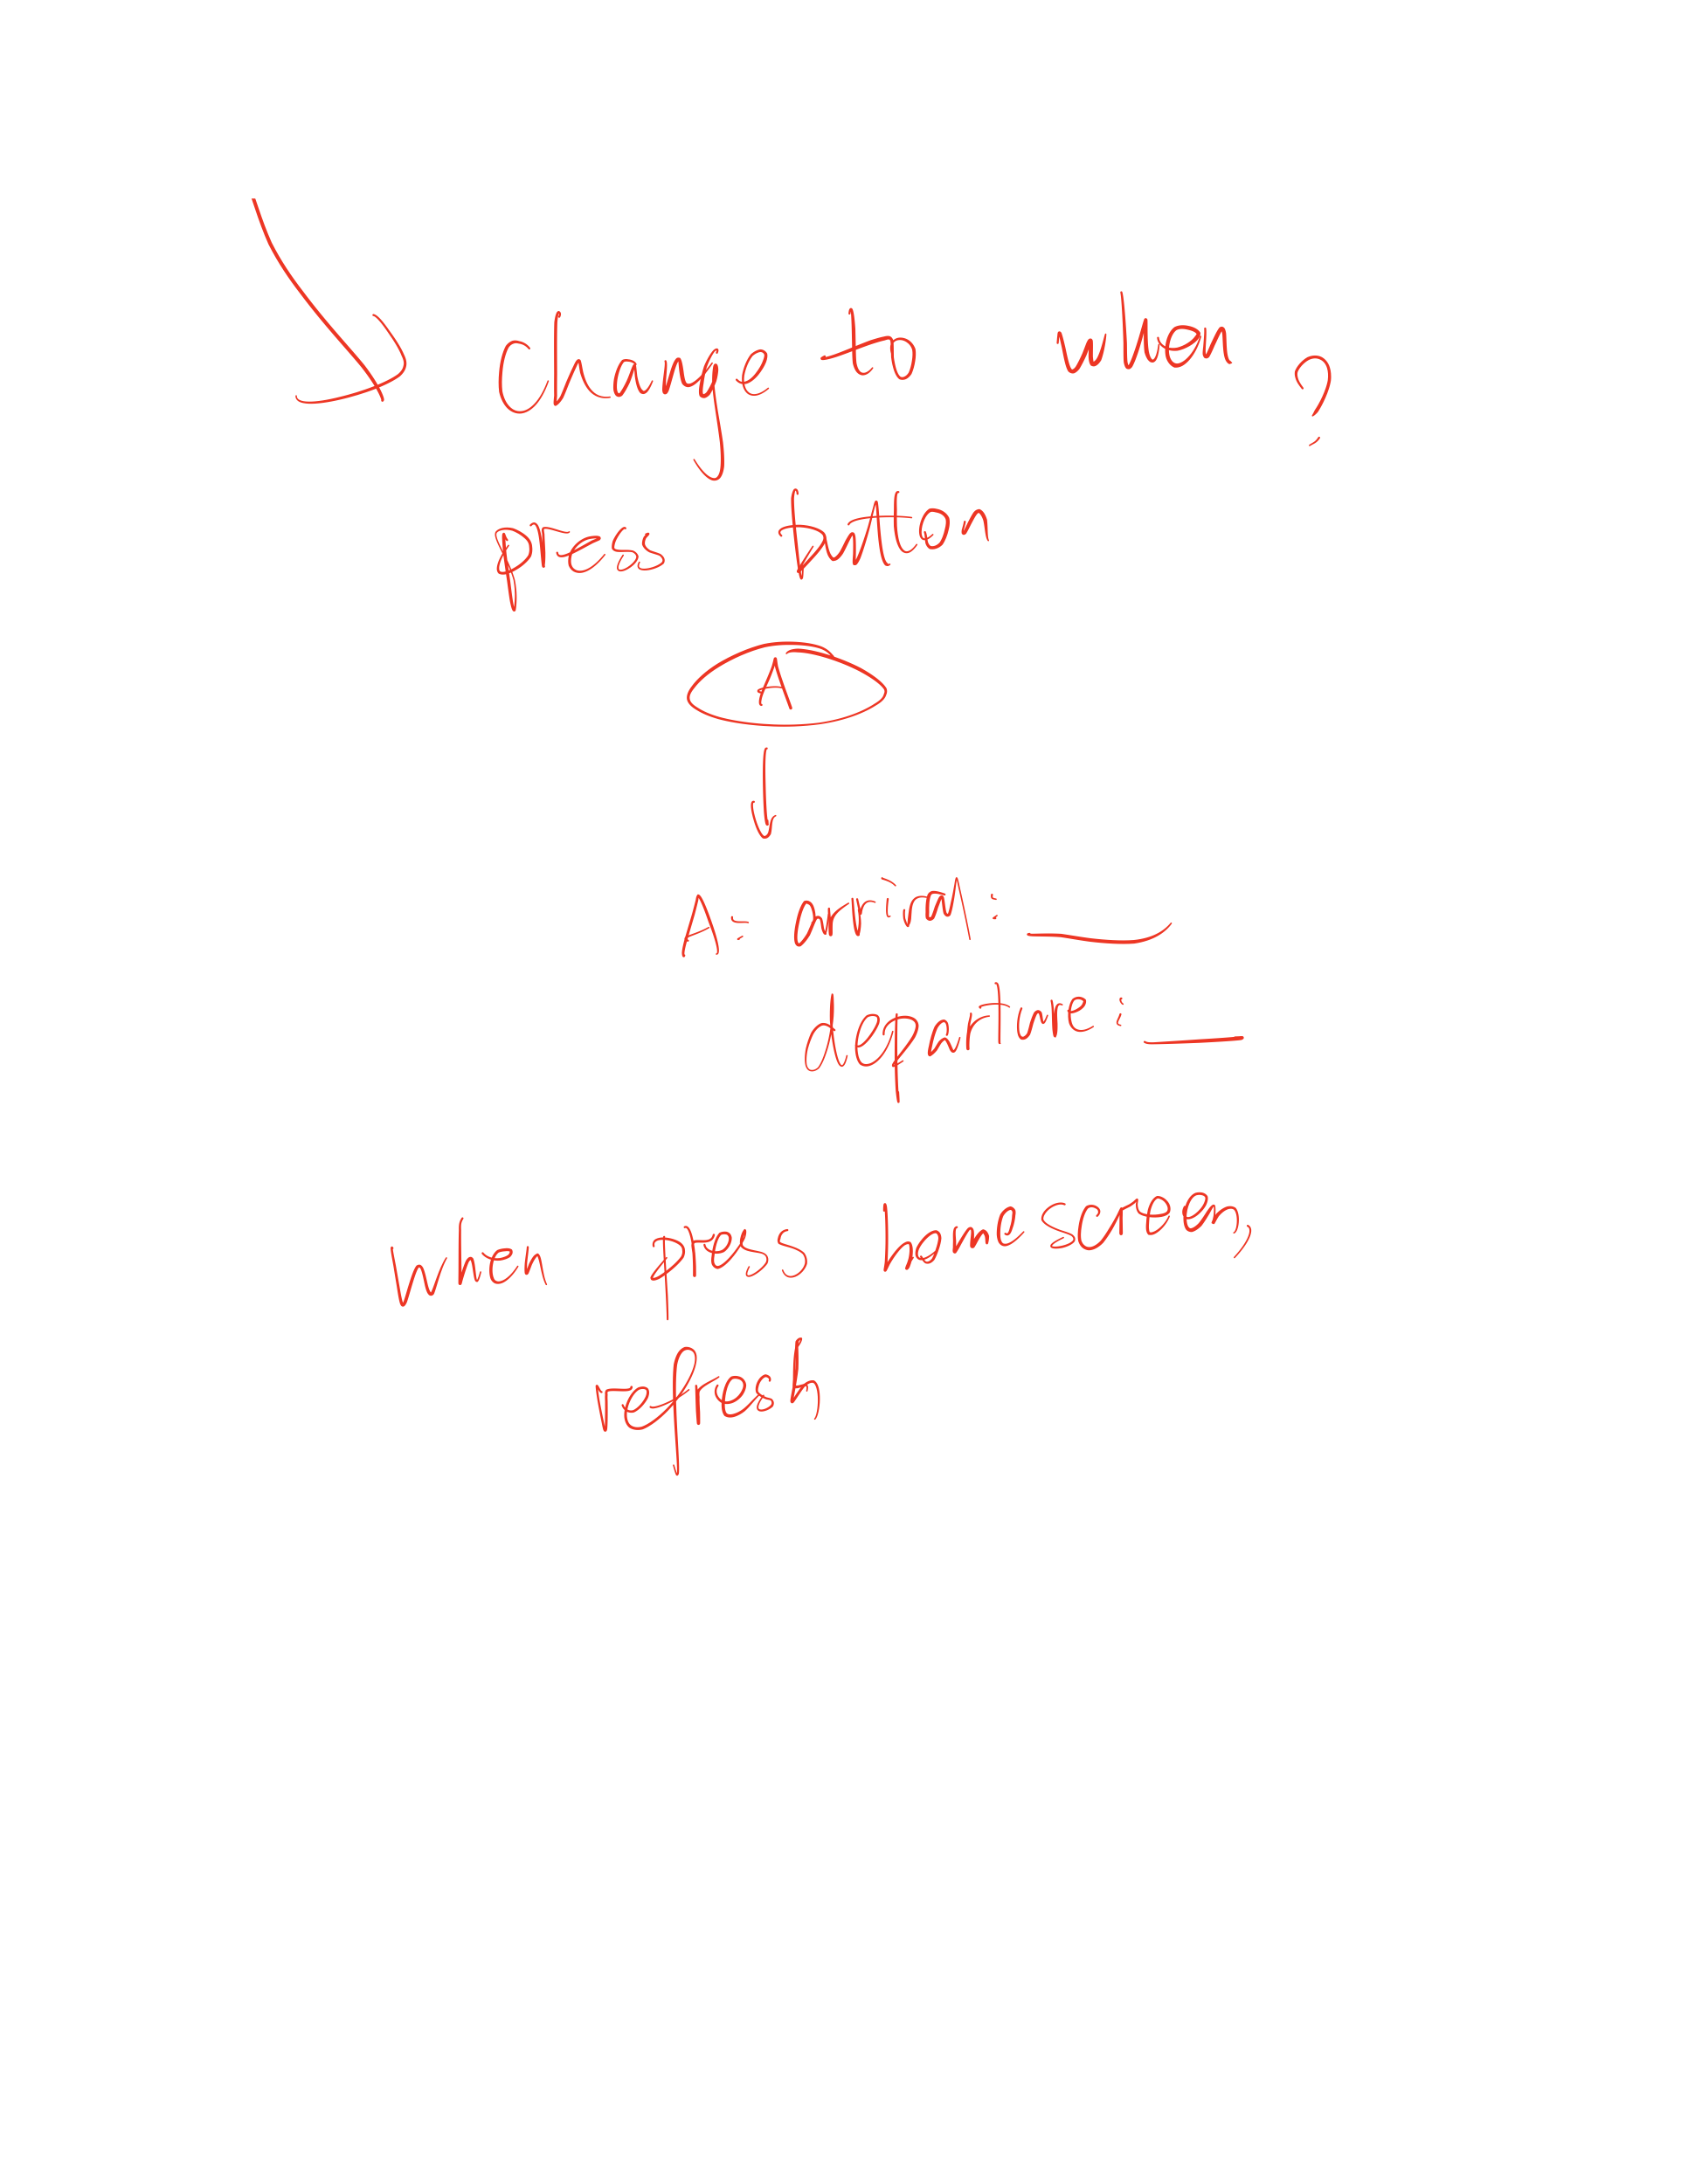 Change to when ?
press button
A
A: arrival: ____
departure: ____
when press homescreen,
refresh